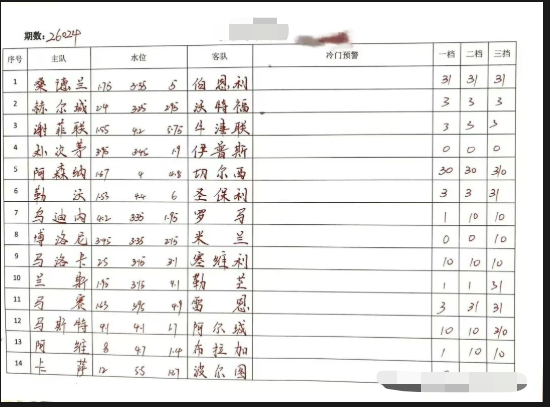 期数: 26024
序号 主队 水位 客队 冷门预警 一档 二档 三档
1 桑德兰 1.75 3.55 5 伯恩利 31 31 31
2 赫尔城 2.4 3.25 2.95 沃特福 3 3 3
3 谢菲联 1.55 4.2 5.75 牛津联 3 3 3
4 朴次茅 3.95 3.45 1.9 伊普斯 0 0 0
5 阿森纳 1.67 4 4.8 切尔西 30 30 310
6 勒沃 1.53 4.4 6 圣保利 3 3 31
7 乌迪内 4.2 3.35 1.95 罗马 1 10 10
8 博洛尼 3.45 3.35 2.15 米兰 0 0 10
9 马洛卡 2.5 3.15 3.1 塞维利 10 10 10
10 兰斯 1.95 3.75 4.1 勒芒 1 1 31
11 马赛 1.63 3.95 4.9 雷恩 3 31 31
12 马斯特 4.1 4.1 1.7 阿尔城 10 10 310
13 阿维 8 4.7 1.4 布拉加 1 10 10
14 卡萨 12 5.5 1.27 波尔图